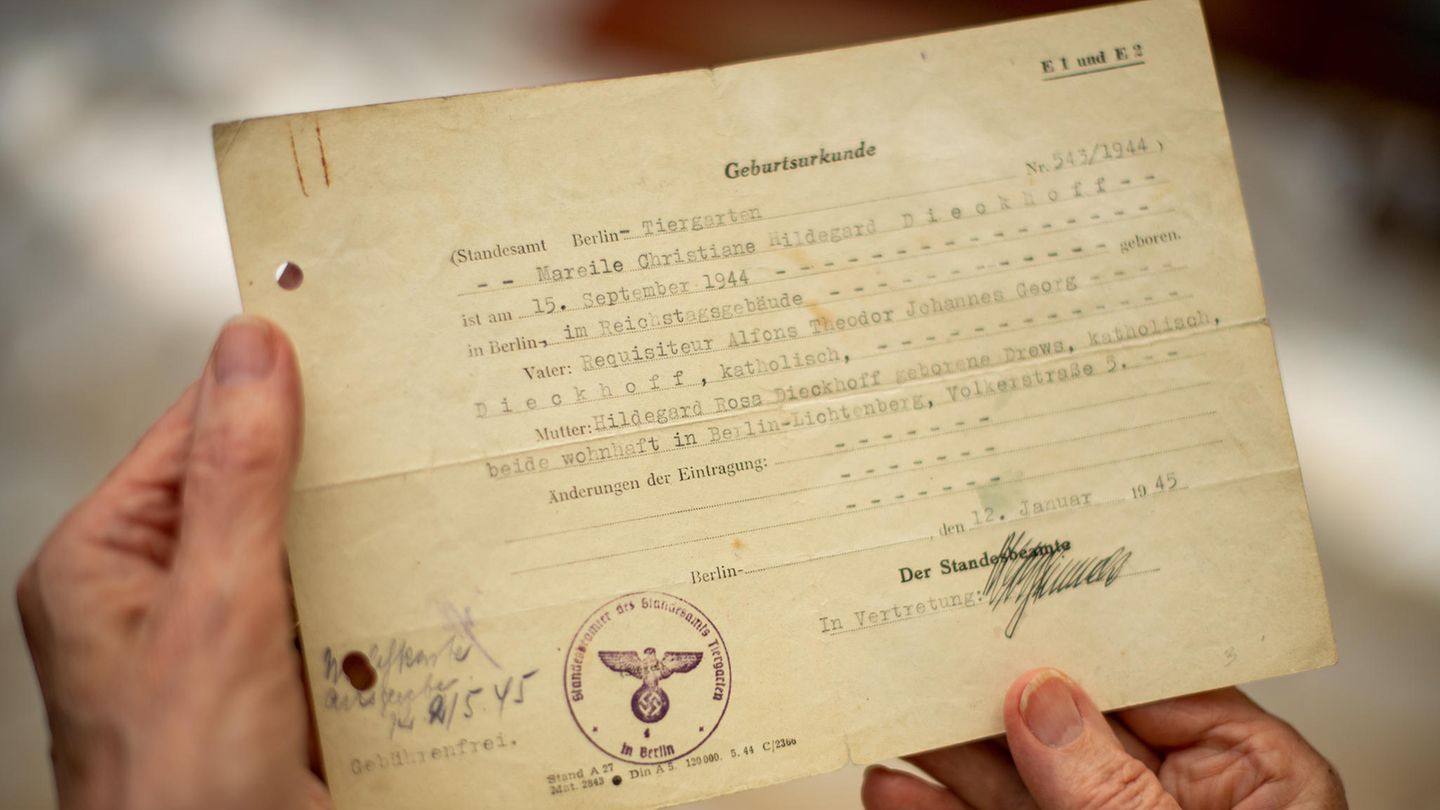 E 1 und E 2
Geburtsurkunde
(Standesamt Berlin- Tiergarten Nr. 543/1944 )
- - Mareile Christiane Hildegard D i e c k h o f f - -
ist am 15. September 1944 - - - - - - - - - - - - - -
in Berlin-, im Reichstagsgebäude - - - - - - - - - - geboren.
Vater: Requisiteur Alfons Theodor Johannes Georg - - - -
D i e c k h o f f , katholisch, - - - - - - - - - - -
Mutter: Hildegard Rosa Dieckhoff geborene Drews, katholisch,
beide wohnhaft in Berlin-Lichtenberg, Volkerstraße 5. - -
Änderungen der Eintragung: - - - - - - -
- - - - - - -
- - - - - -
Berlin- , den 12. Januar 19 45
Der Standesbeamte
In Vertretung:
5. 45
Gebührenfrei.
Standesbeamter des Standesamts Tiergarten
in Berlin
Stand A 27
Mat. 2843 Din A 5. 120 000. 5. 44 C/2366
3